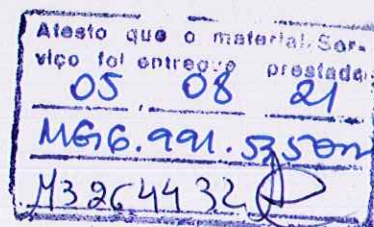 Atesto que o material, Ser-
viço foi entregue prestado
05 08 21
MG 6.991.535
M3264432